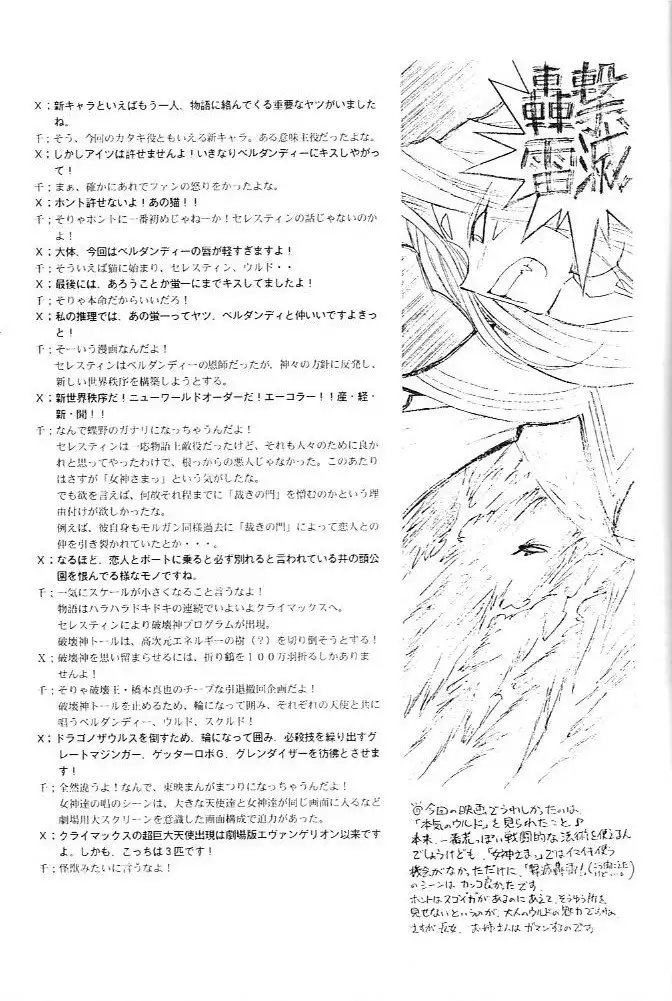 X；新キャラといえばもう一人、物語に絡んでくる重要なヤツがいました
ね。
千；そう、今回のカタキ役ともいえる新キャラ。ある意味主役だったよな。
X；しかしアイツは許せませんよ！いきなりベルダンディーにキスしやがっ
て！
千；まぁ、確かにあれでファンの怒りをかったよな。
X；ホント許せないよ！あの猫！！
千；そりゃホントに一番初めじゃねーか！セレスティンの話じゃないのか
よ！
X；大体、今回はベルダンディーの唇が軽すぎますよ！
千；そういえば猫に始まり、セレスティン、ウルド・・
X；最後には、あろうことか蛍一にまでキスしてましたよ！
千；そりゃ本命だからいいだろ！
X；私の推理では、あの蛍一ってヤツ、ベルダンディと仲いいですよきっ
と！
千；そーいう漫画なんだよ！
セレスティンはベルダンディーの恩師だったが、神々の方針に反発し、
新しい世界秩序を構築しようとする。
X；新世界秩序だ！ニューワールドオーダーだ！エーコラー！！産・経・
新・聞！！
千；なんで蝶野のガナリになっちゃうんだよ！
セレスティンは一応物語上敵役だったけど、それも人々のために良か
れと思ってやったわけで、根っからの悪人じゃなかった。このあたり
はさすが「女神さまっ」という気がしたな。
でも欲を言えば、何故それ程までに「裁きの門」を憎むのかという理
由付けが欲しかったな。
例えば、彼自身もモルガン同様過去に「裁きの門」によって恋人との
仲を引き裂かれていたとか・・・。
X；なるほど、恋人とボートに乗ると必ず別れると言われている井の頭公
園を恨んでる様なモノですね。
千；一気にスケールが小さくなること言うなよ！
物語はハラハラドキドキの連続でいよいよクライマックスへ。
セレスティンにより破壊神プログラムが出現。
破壊神トールは、高次元エネルギーの樹（？）を切り倒そうとする！
X；破壊神を思い留まらせるには、折り鶴を１００万羽折るしかありま
せんよ！
千；そりゃ破壊王・橋本真也のチープな引退撤回企画だよ！
破壊神トールを止めるため、輪になって囲み、それぞれの天使と共に
唱うベルダンディー、ウルド、スクルド！
X；ドラゴノザウルスを倒すため、輪になって囲み、必殺技を繰り出すグ
レートマジンガー、ゲッターロボＧ、グレンダイザーを彷彿とさせま
す！
千；全然違うよ！なんで、東映まんがまつりになっちゃうんだよ！
女神達の唱のシーンは、大きな天使達と女神達が同じ画面に入るなど
劇場用大スクリーンを意識した画面構成で迫力があった。
X；クライマックスの超巨大天使出現は劇場版エヴァンゲリオン以来です
よ。しかも、こっちは３匹です！
千；怪獣みたいに言うなよ！
撃滅
轟雷
今回の映画でうれしかったのは、
「本気のウルド」を見られたこと♪
本来、一番荒っぽい戦闘的な法術を使えるん
でしょうけども、「女神さまっ」ではイマイチ使う
機会がなかっただけに、「撃滅轟雷！
のシーンは カッコ良かったです。
ホントはスゴイ力があるのにあえて、そうゆう所を
見せないというのが、大人のウルドの魅力ですよね。
さすが長女、お姉さんは ガマンするのです